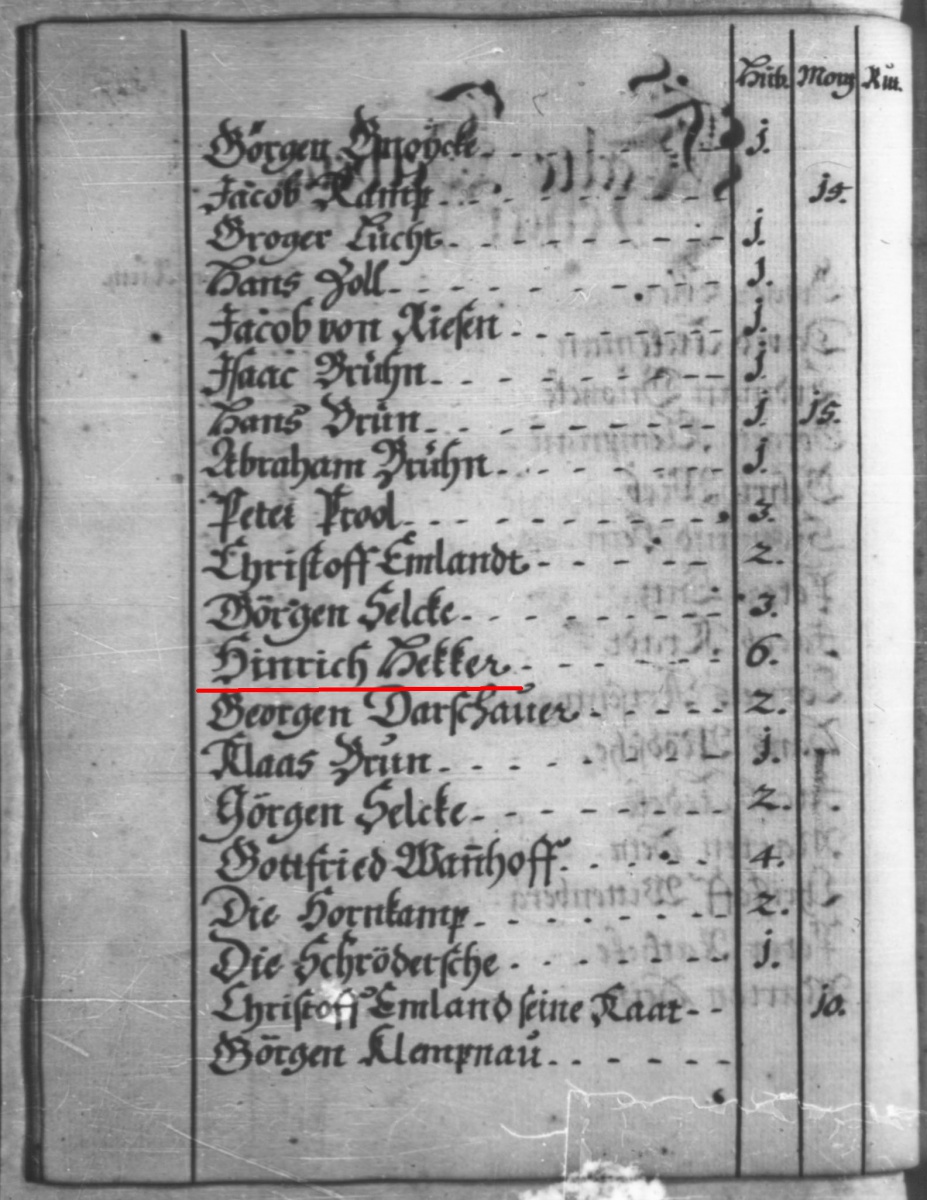 Hüb. Morg Rut.
Görgen Gnoycke 1.
Jacob Kamp 15.
Groger Lücht 1.
Hans Zoll 1.
Jacob von Riesen 1.
Isaac Brühn 1.
Hans Brün 1. 15.
Abraham Brühn 1.
Peter Prool 3.
Christoff Emlandt 2.
Görgen Selcke 3.
Hinrich Hekker 6.
Georgen Darschauer 2.
Klaas Brun 1.
Görgen Selcke 2.
Gottfried Wan̄hoff 4.
Die Hornkamp 2.
Die Schrödersche 1.
Christoff Emland seine Kaat 10.
Görgen Klempnau